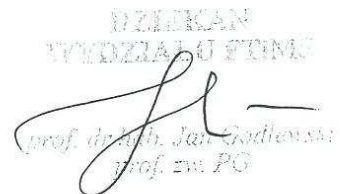 DZIEKAN
WYDZIAŁU FTIMS
prof. dr hab. Jan Godlewski
prof. zw. PG